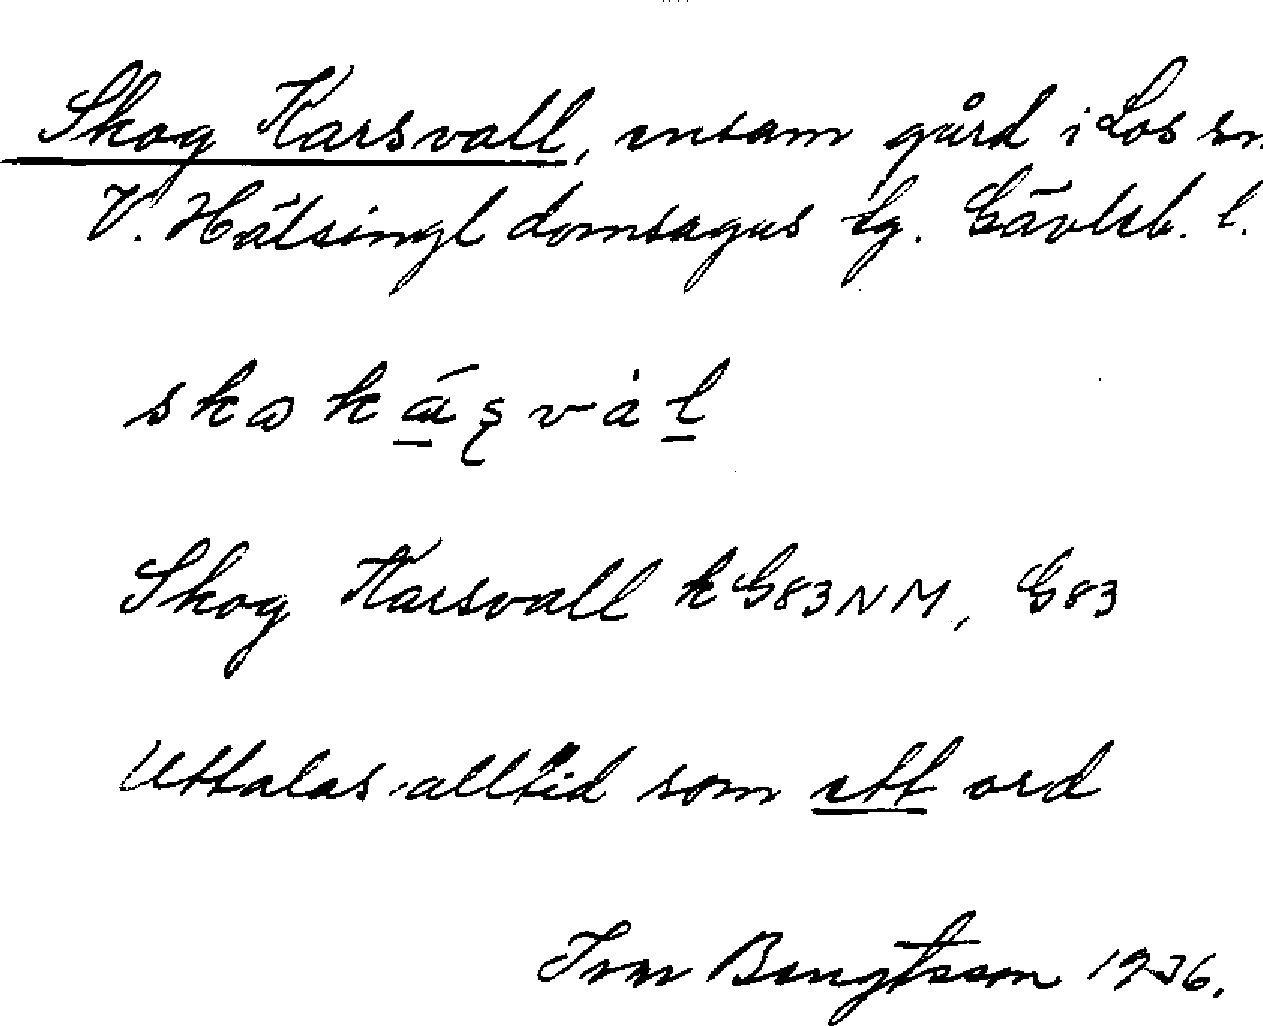 Skog Karsvall, ensam gård i Los sn
V. Hälsingl domsagas tg. Gävleb. l.
Skog Karsvall k G83NM, G83
Uttalas alltid som ett ord
Ivar Bengtsson